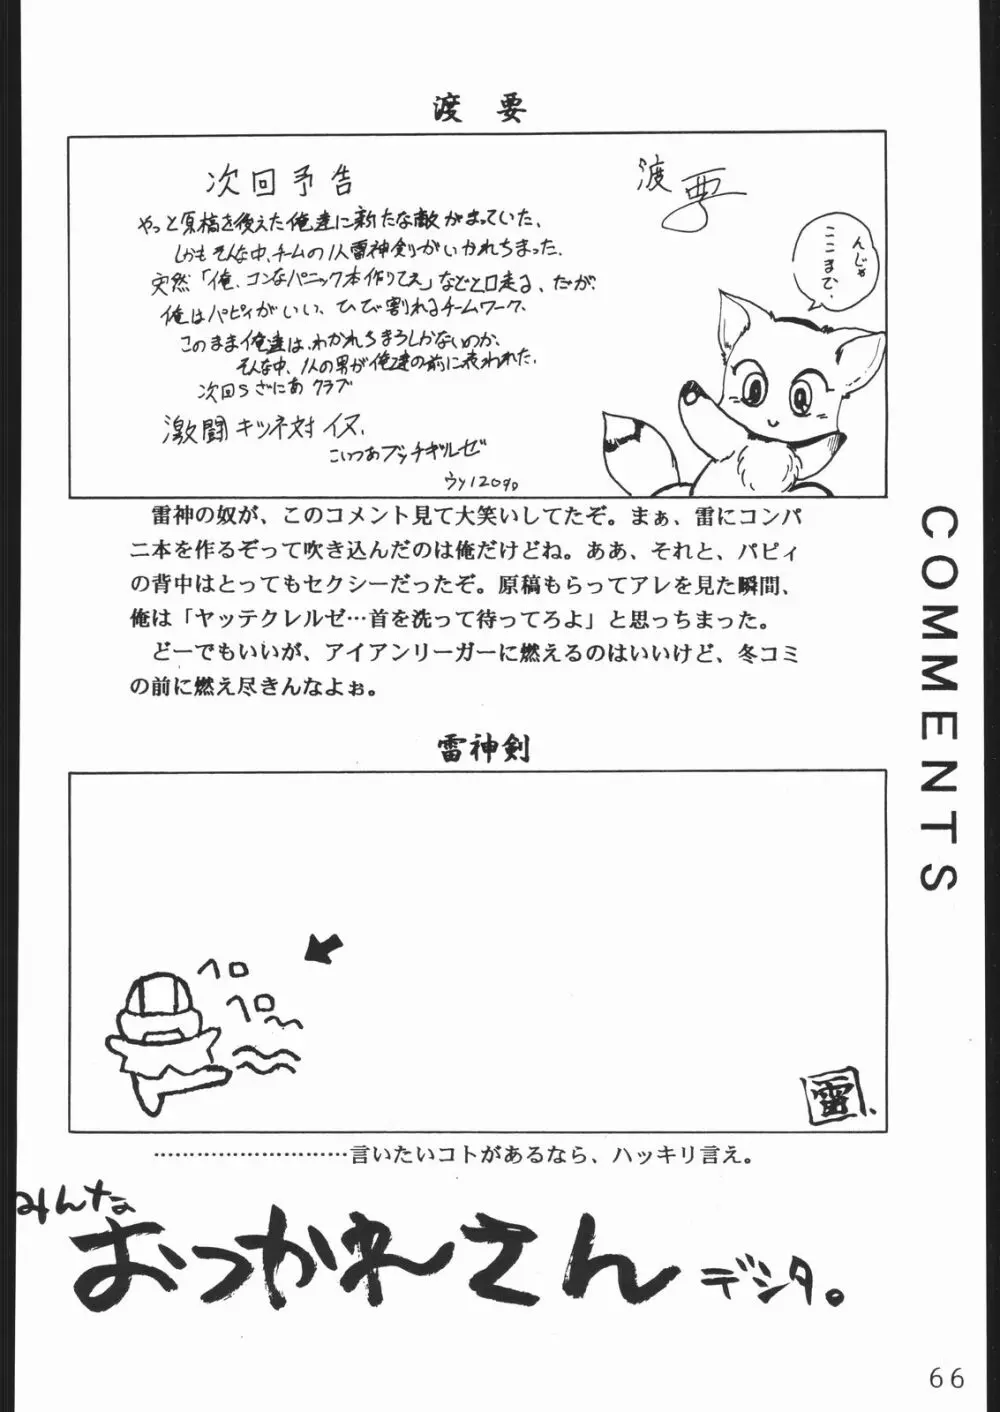 渡 要
次回予告
渡 要
やっと原稿を終えた俺達に新たな敵がまっていた、
しかもそんな中、チームの1人雷神剣がいかれちまった。
突然「俺、コンなパニック本作りてえ」などと口走る、だが、
俺はパピィがいい、ひび割れるチームワーク、
このまま俺達は、わかれちまうしかないのか、
そんな中、1人の男が俺達の前に表われた。
次回Sざにあ クラブ
激闘キツネ対イヌ、
こいつあブッチギルゼ
んじゃ
ここまで、
雷神の奴が、このコメント見て大笑いしてたぞ。まぁ、雷にコンパ
ニ本を作るぞって吹き込んだのは俺だけどね。ああ、それと、パピィ
の背中はとってもセクシーだったぞ。原稿もらってアレを見た瞬間、
俺は「ヤッテクレルゼ…首を洗って待ってろよ」と思っちまった。
どーでもいいが、アイアンリーガーに燃えるのはいいけど、冬コミ
の前に燃え尽きんなよぉ。
COMMENTS
雷神剣
ヘロ
ヘロ
雷
…………………………言いたいコトがあるなら、ハッキリ言え。
みんな
おつかれーさん
デシタ。
66